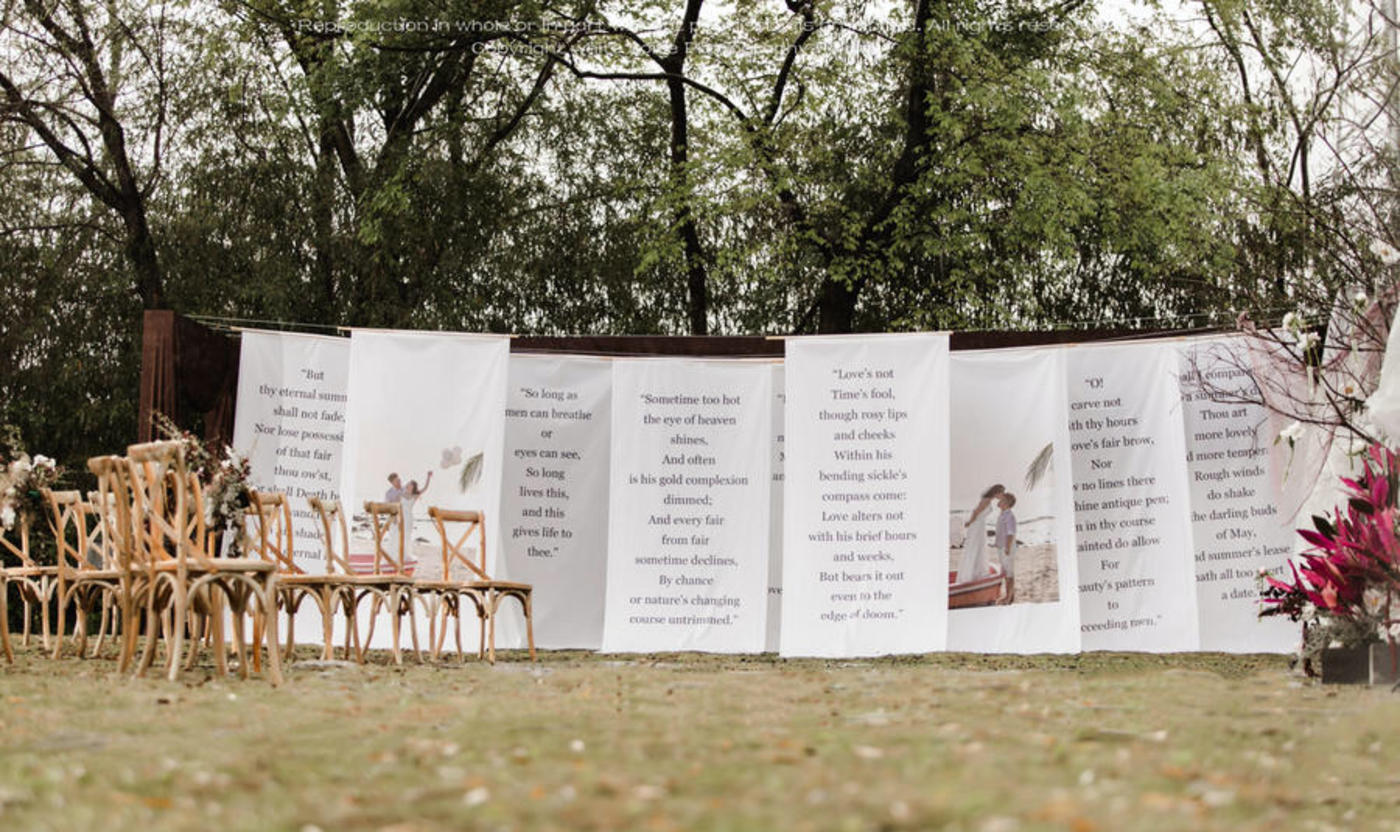 Reproduction in whole or in part
All rights
Copyright
"But
thy eternal summ
shall not fade,
Nor lose possessi
of that fair
thou ow'st,
shall Death b
shade
ernal
"So long as
men can breathe
or
eyes can see,
So long
lives this,
and this
gives life to
thee."
"Sometime too hot
the eye of heaven
shines,
And often
is his gold complexion
dimmed;
And every fair
from fair
sometime declines,
By chance
or nature's changing
course untrimmed."
"Love's not
Time's fool,
though rosy lips
and cheeks
Within his
bending sickle's
compass come:
Love alters not
with his brief hours
and weeks,
But bears it out
even to the
edge of doom."
"O!
carve not
th thy hours
ove's fair brow,
Nor
w no lines there
hine antique pen;
n in thy course
ainted do allow
For
auty's pattern
to
cceeding men."
all I compare
a summer's d
Thou art
more lovely
d more temper
Rough winds
do shake
he darling buds
of May,
nd summer's lease
ath all too short
a date.